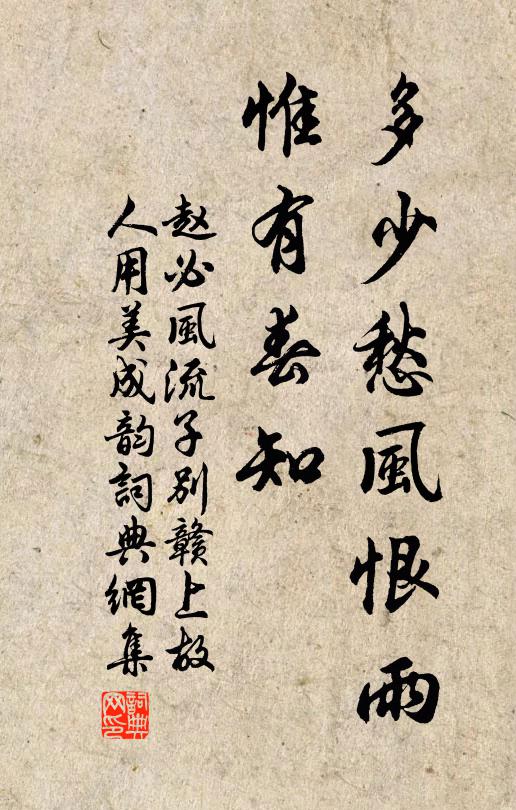 多少愁風恨雨
惟有春知
赵必風流子别贛上故
人用美成韵詞典網集
詞典
网印